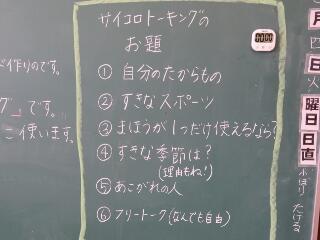 サイコロトーキングの
お題
① 自分のたからもの
② すきなスポーツ
③ まほうが1つだけ使えるなら?
④ すきな季節は?
(理由もね!)
⑤ あこがれの人
⑥ フリートーク(なんでも自由)
ド作りのです。
グ」です。
使います。
00:00
月
日
火
曜日
日直